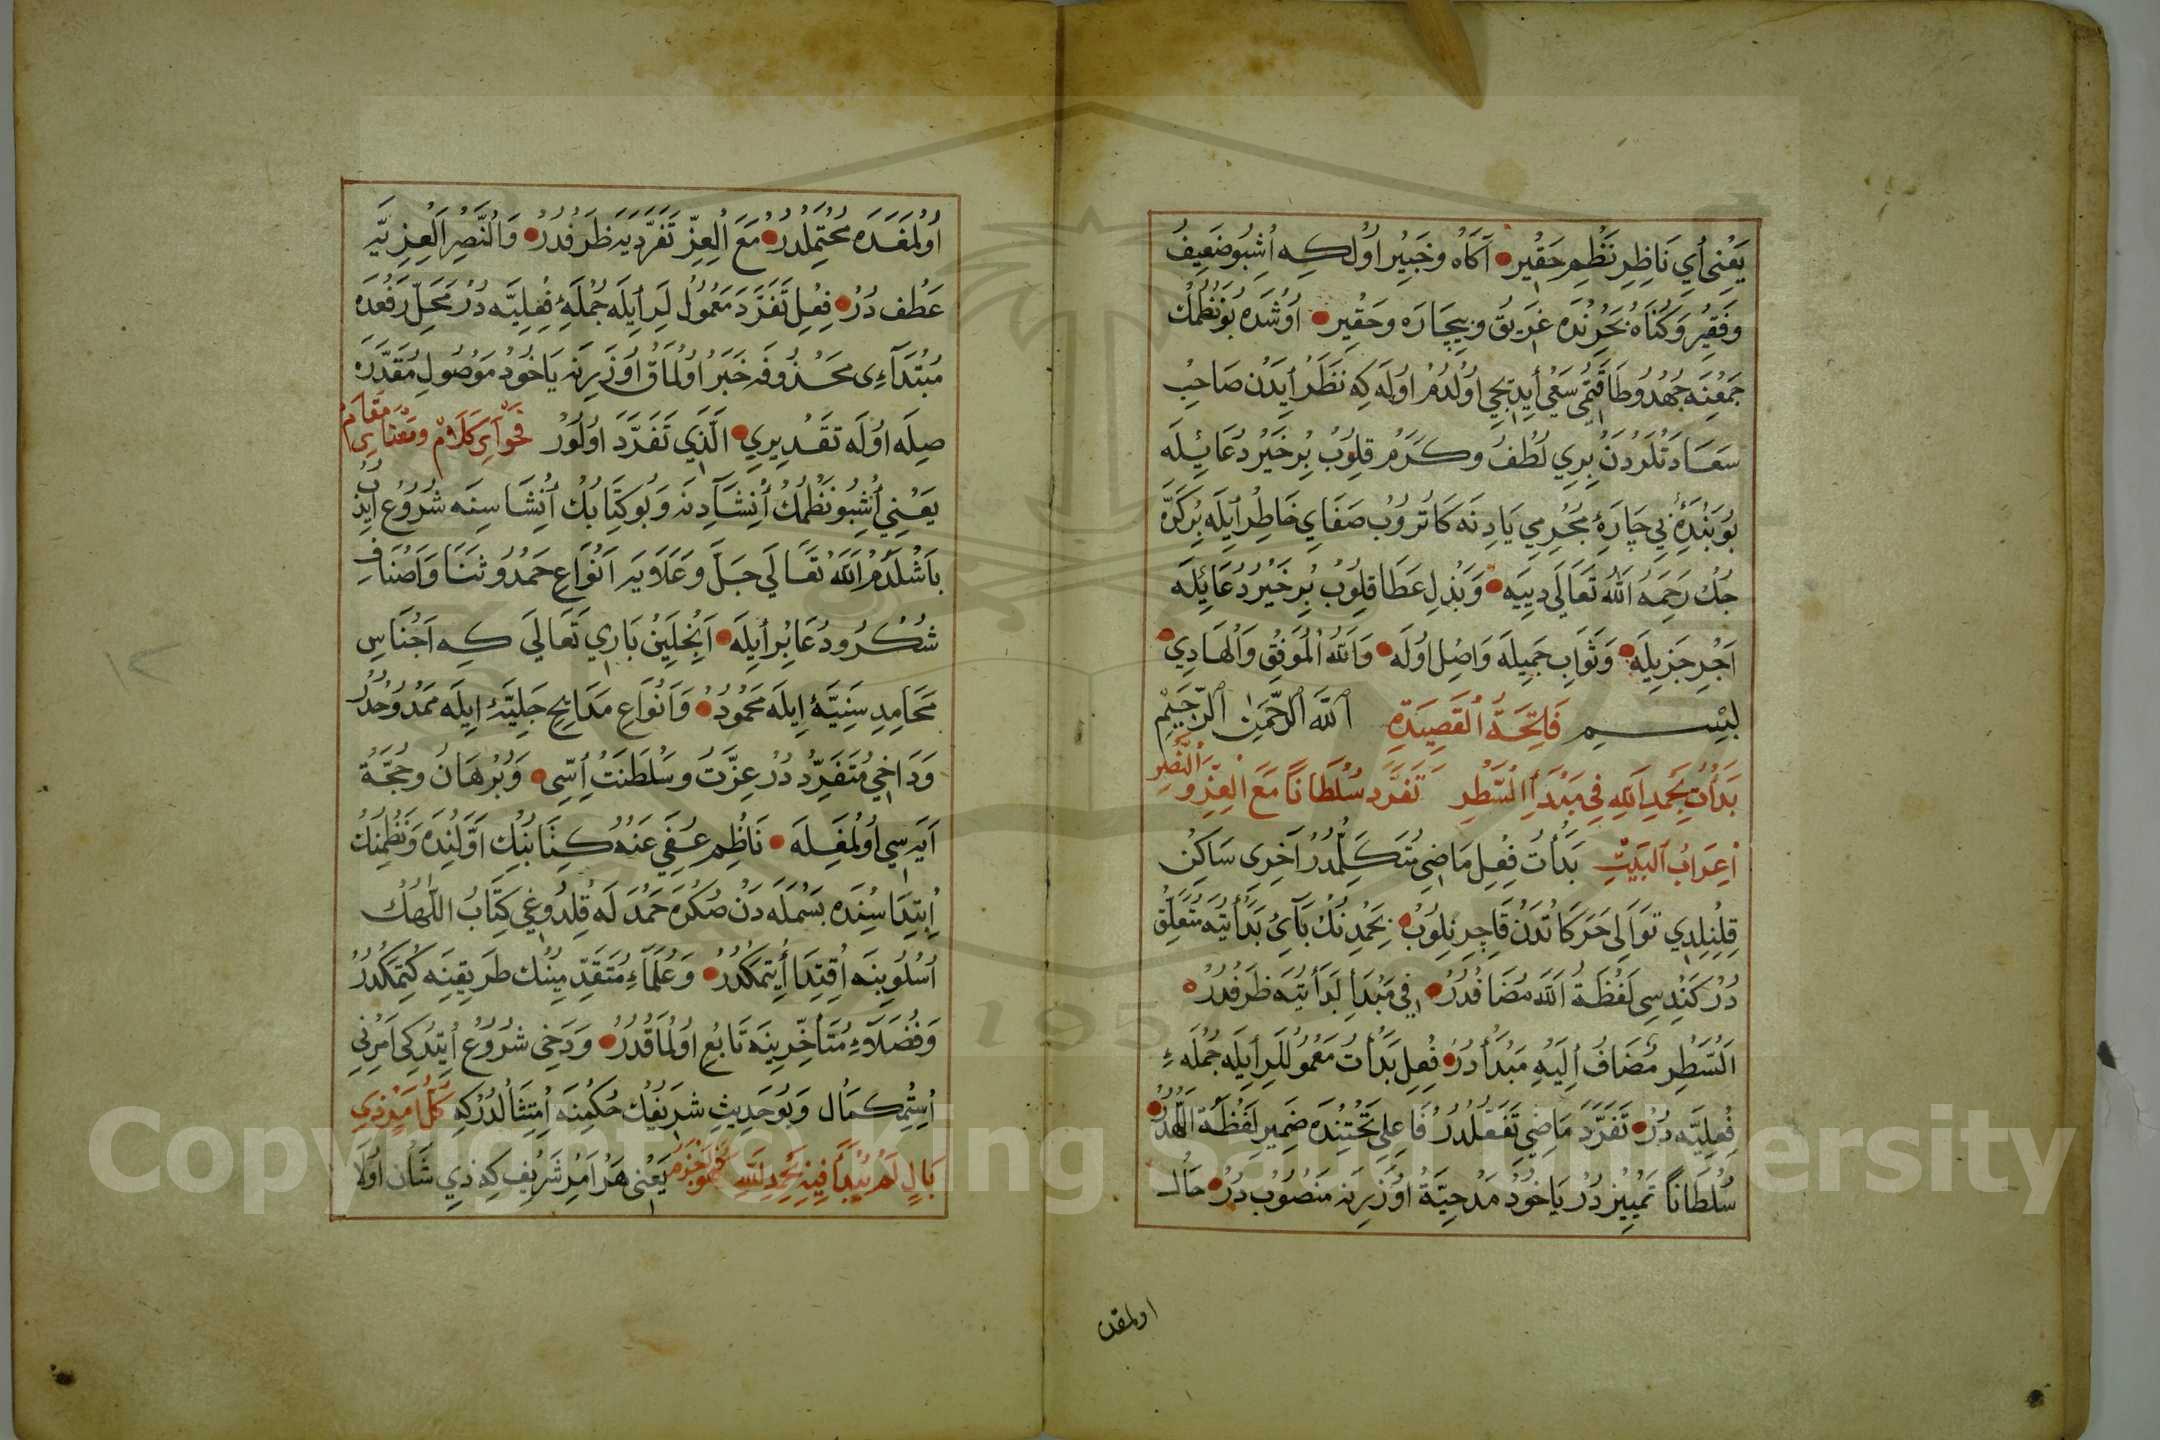 يعني أي ناظر نظم حقير آكاه وخبير اول كه اشبو ضعيف
وفقير وكناه بحرنده غريق وبيچاره وحقير اوشده بو نظمك
جمعنه جهد وطاقتمي سعي ايديجي اولدم اوله كه نظر ايدن صاحب
سعادتلردن بري لطف وكرم قلوب بر خير دعائيله
بو بندۀ بي چارۀ مجرمي يادنه كاتروب صفاي خاطر ايله بر كره
جك رحمه الله تعالى دييه وبذل عطا قلوب بر خير دعائيله
اجر جزيله وثواب جميله واصل اوله والله الموفق والهادي
بسم فاتحة القصيدة الله الرحمن الرحيم
بدأت بحمد الله في مبدأ السطر تفرد سلطانا مع العز والنصر
اعراب البيت بدأت فعل ماضي متكلمدر آخرى ساكن
قلنلدي توالى حركاتدن قاچرنلوب بحمدنك بائ بدأتيه متعلق
در كندسي لفظة الله مضافدر في مبدأ بدأتيه ظرفدر
السطر مضاف اليه مبدأ در فعل بدأت معموللر ايله جملۀ
فعليه در تفرد ماضي تفعلدر فاعلى تحتنده ضمير لفظة اللهدر
سلطانا تمييز در ياخود مدحية اوزرنه منصوب در حال
اولمقده
اولمقده محتملدر مع العز تفرديه ظرفدر والنصر العزيه
عطف در فعل تفرد معموللر ايله جملۀ فعليه در محل رفعده
مبتداءى محذوفه خبر اولماق اوزرنه ياخود موصول مقدره
صله اوله تقديري الذي تفرد اولور فحواي كلام ومقتضاي مقام
يعني اشبو نظمك انشادنه وبو كتابك انشاسنه شروع ايدب
باشلدم الله تعالى جل وعلايه انواع حمد وثنا واصناف
شكر ودعا بر ايله انجلين باري تعالى كه اجناس
محامد سنيۀ ايله محمود وانواع مدايح جليۀ ايله ممدوحدر
وداخي متفرد در عزت وسلطنت اسي وبرهان وحجة
ايه سي اولمغله ناظم عفي عنه كتابنك اولنده ونظمنك
ابتداسنده بسمله دن صكره حمدله قلدوغي كتاب اللهك
اسلوبنه اقتدا ايتمكدر وعلماء متقدمينك طريقنه كتمكدر
وفضلاء متأخرينه تابع اولماقدر ودخي شروع ايتدكى امرني
استكمال وبو حديث شريفك حكمنه امتثالدر كه كل امر ذي
بال لم يبدأ فيه بحمد الله فهو اجزم يعني هر امر شريف كه ذي شان اولا